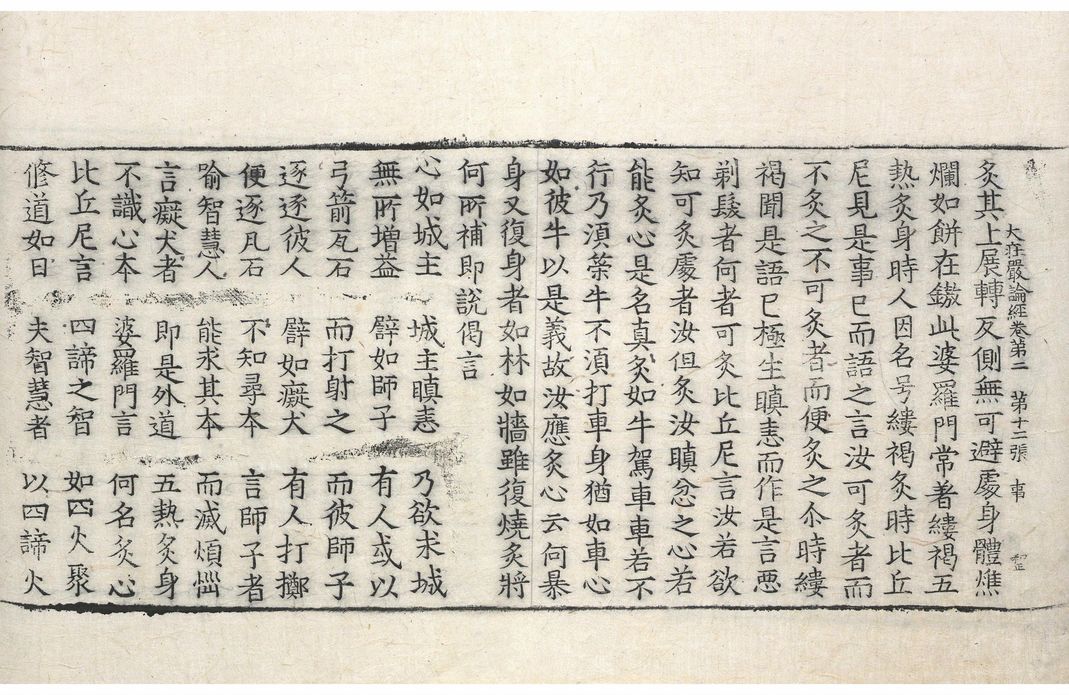 大庄嚴論經卷第二　第十二張　事
炙其上展轉反側無可避處身體燋
爛如餅在鏊此婆羅門常著縷褐五
熱炙身時人因名号縷褐炙時比丘
尼見是事已而語之言汝可炙者而
不炙之不可炙者而便炙之尒時縷
褐聞是語已極生瞋恚而作是言惡
剃髮者何者可炙比丘尼言汝若欲
知可炙處者汝但炙汝瞋忿之心若
能炙心是名真炙如牛駕車車若不
行乃湏策牛不湏打車身猶如車心
如彼牛以是義故汝應炙心云何暴
身又復身者如林如牆雖復燒炙將
何所補即說偈言
心如城主　城主瞋恚　乃欲求城
無所增益　譬如師子　有人或以
弓箭瓦石　而打射之　而彼師子
逐逐彼人　譬如癡犬　有人打擲
便逐瓦石　不知尋本　言師子者
喻智慧人　能求其本　而滅煩惱
言癡犬者　即是外道　五熱炙身
不識心本　婆羅門言　何名炙心
比丘尼言　四諦之智　如四火聚
修道如日　夫智慧者　以四諦火